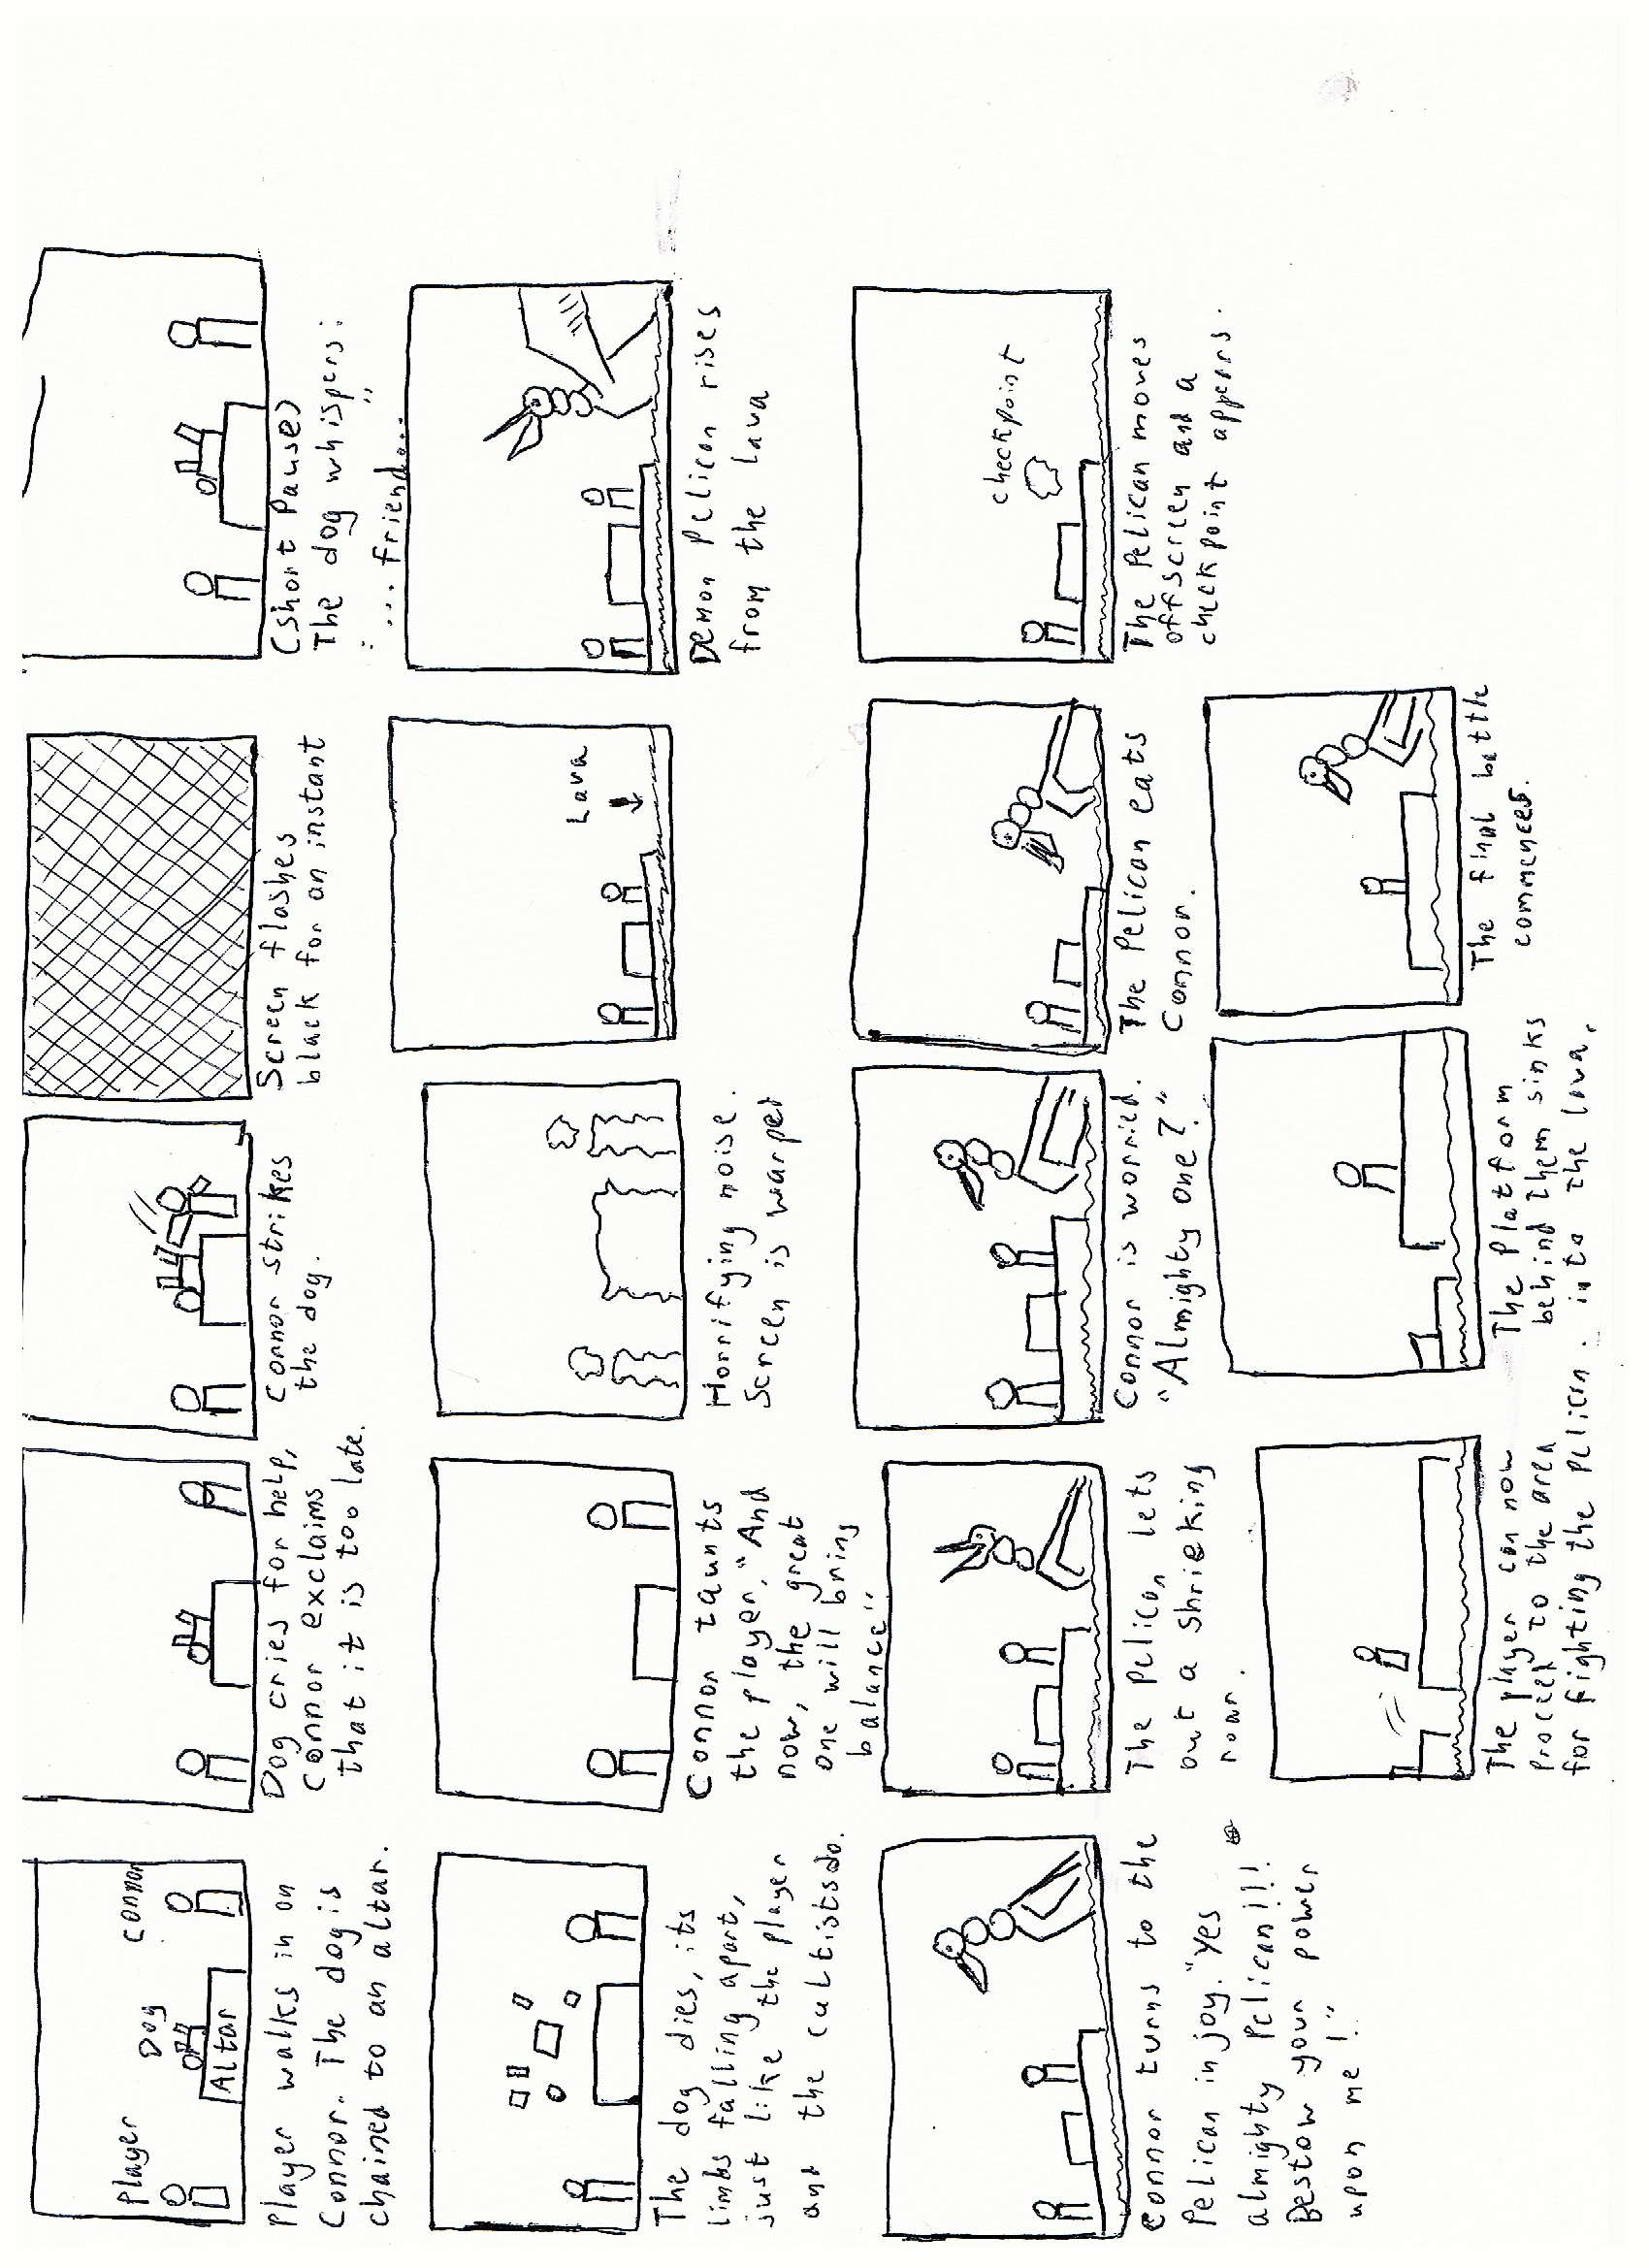 Player
Dog
Connor
Altar
Player walks in on
Connor. The dog is
chained to an altar.
Dog cries for help,
Connor exclaims
that it is too late.
Connor strikes
the dog.
Screen flashes
black for an instant
(short Pause)
The dog whispers:
"...friend..."
The dog dies, its
limbs falling apart,
just like the player
and the cultists do.
Connor taunts
the player. "And
now, the great
one will bring
balance"
Horrifying noise.
Screen is warped
Lava
Demon Pelican rises
from the lava
Connor turns to the
Pelican in joy. "Yes
almighty Pelican!!!
Bestow your power
upon me!"
The Pelican lets
out a shrieking
roar.
Connor is worried.
"Almighty one?"
The Pelican eats
Connor.
checkpoint
The Pelican moves
offscreen and a
checkpoint appears.
The player can now
proceed to the area
for fighting the pelican.
The platform
behind them sinks
into the lava.
The final battle
commences.